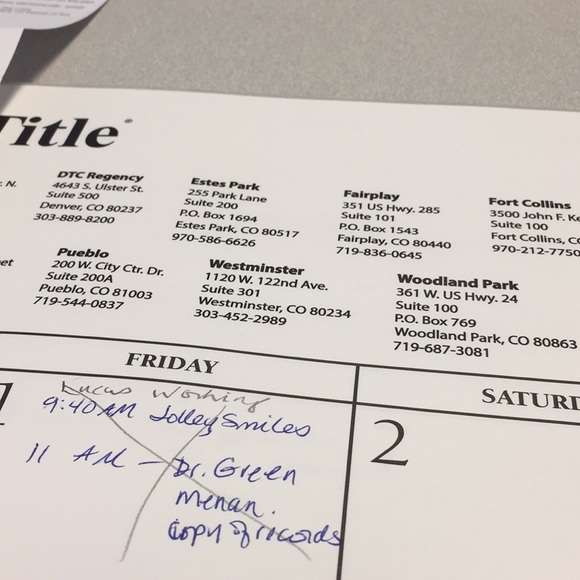 Title®
DTC Regency
4643 S. Ulster St.
Suite 500
Denver, CO 80237
303-889-8200
Estes Park
255 Park Lane
Suite 200
P.O. Box 1694
Estes Park, CO 80517
970-586-6626
Fairplay
351 US Hwy. 285
Suite 101
P.O. Box 1543
Fairplay, CO 80440
719-836-0645
Fort Collins
3500 John F. Ke
Suite 100
Fort Collins, C
970-212-7750
N.
et
Pueblo
200 W. City Ctr. Dr.
Suite 200A
Pueblo, CO 81003
719-544-0837
Westminster
1120 W. 122nd Ave.
Suite 301
Westminster, CO 80234
303-452-2989
Woodland Park
361 W. US Hwy. 24
Suite 100
P.O. Box 769
Woodland Park, CO 80863
719-687-3081
FRIDAY
SATURD
1
Lucas Working
9:40 AM Jolley Smiles
11 AM – Dr. Green
Menan.
copy of records
2